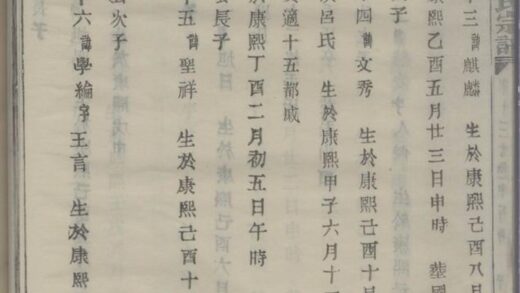 氏宗譜
十三諱麒麟 生於康熙己酉八月
康熙乙酉五月廿三日申時 塟國
子
四諱文秀 生於康熙己酉十月
呂氏 生於康熙甲子六月十
適十五都戚
於康熙丁酉二月初五日午時
長子
十五諱聖祥 生於康熙己酉十
次子
十六諱學綸字王言 生於康熙